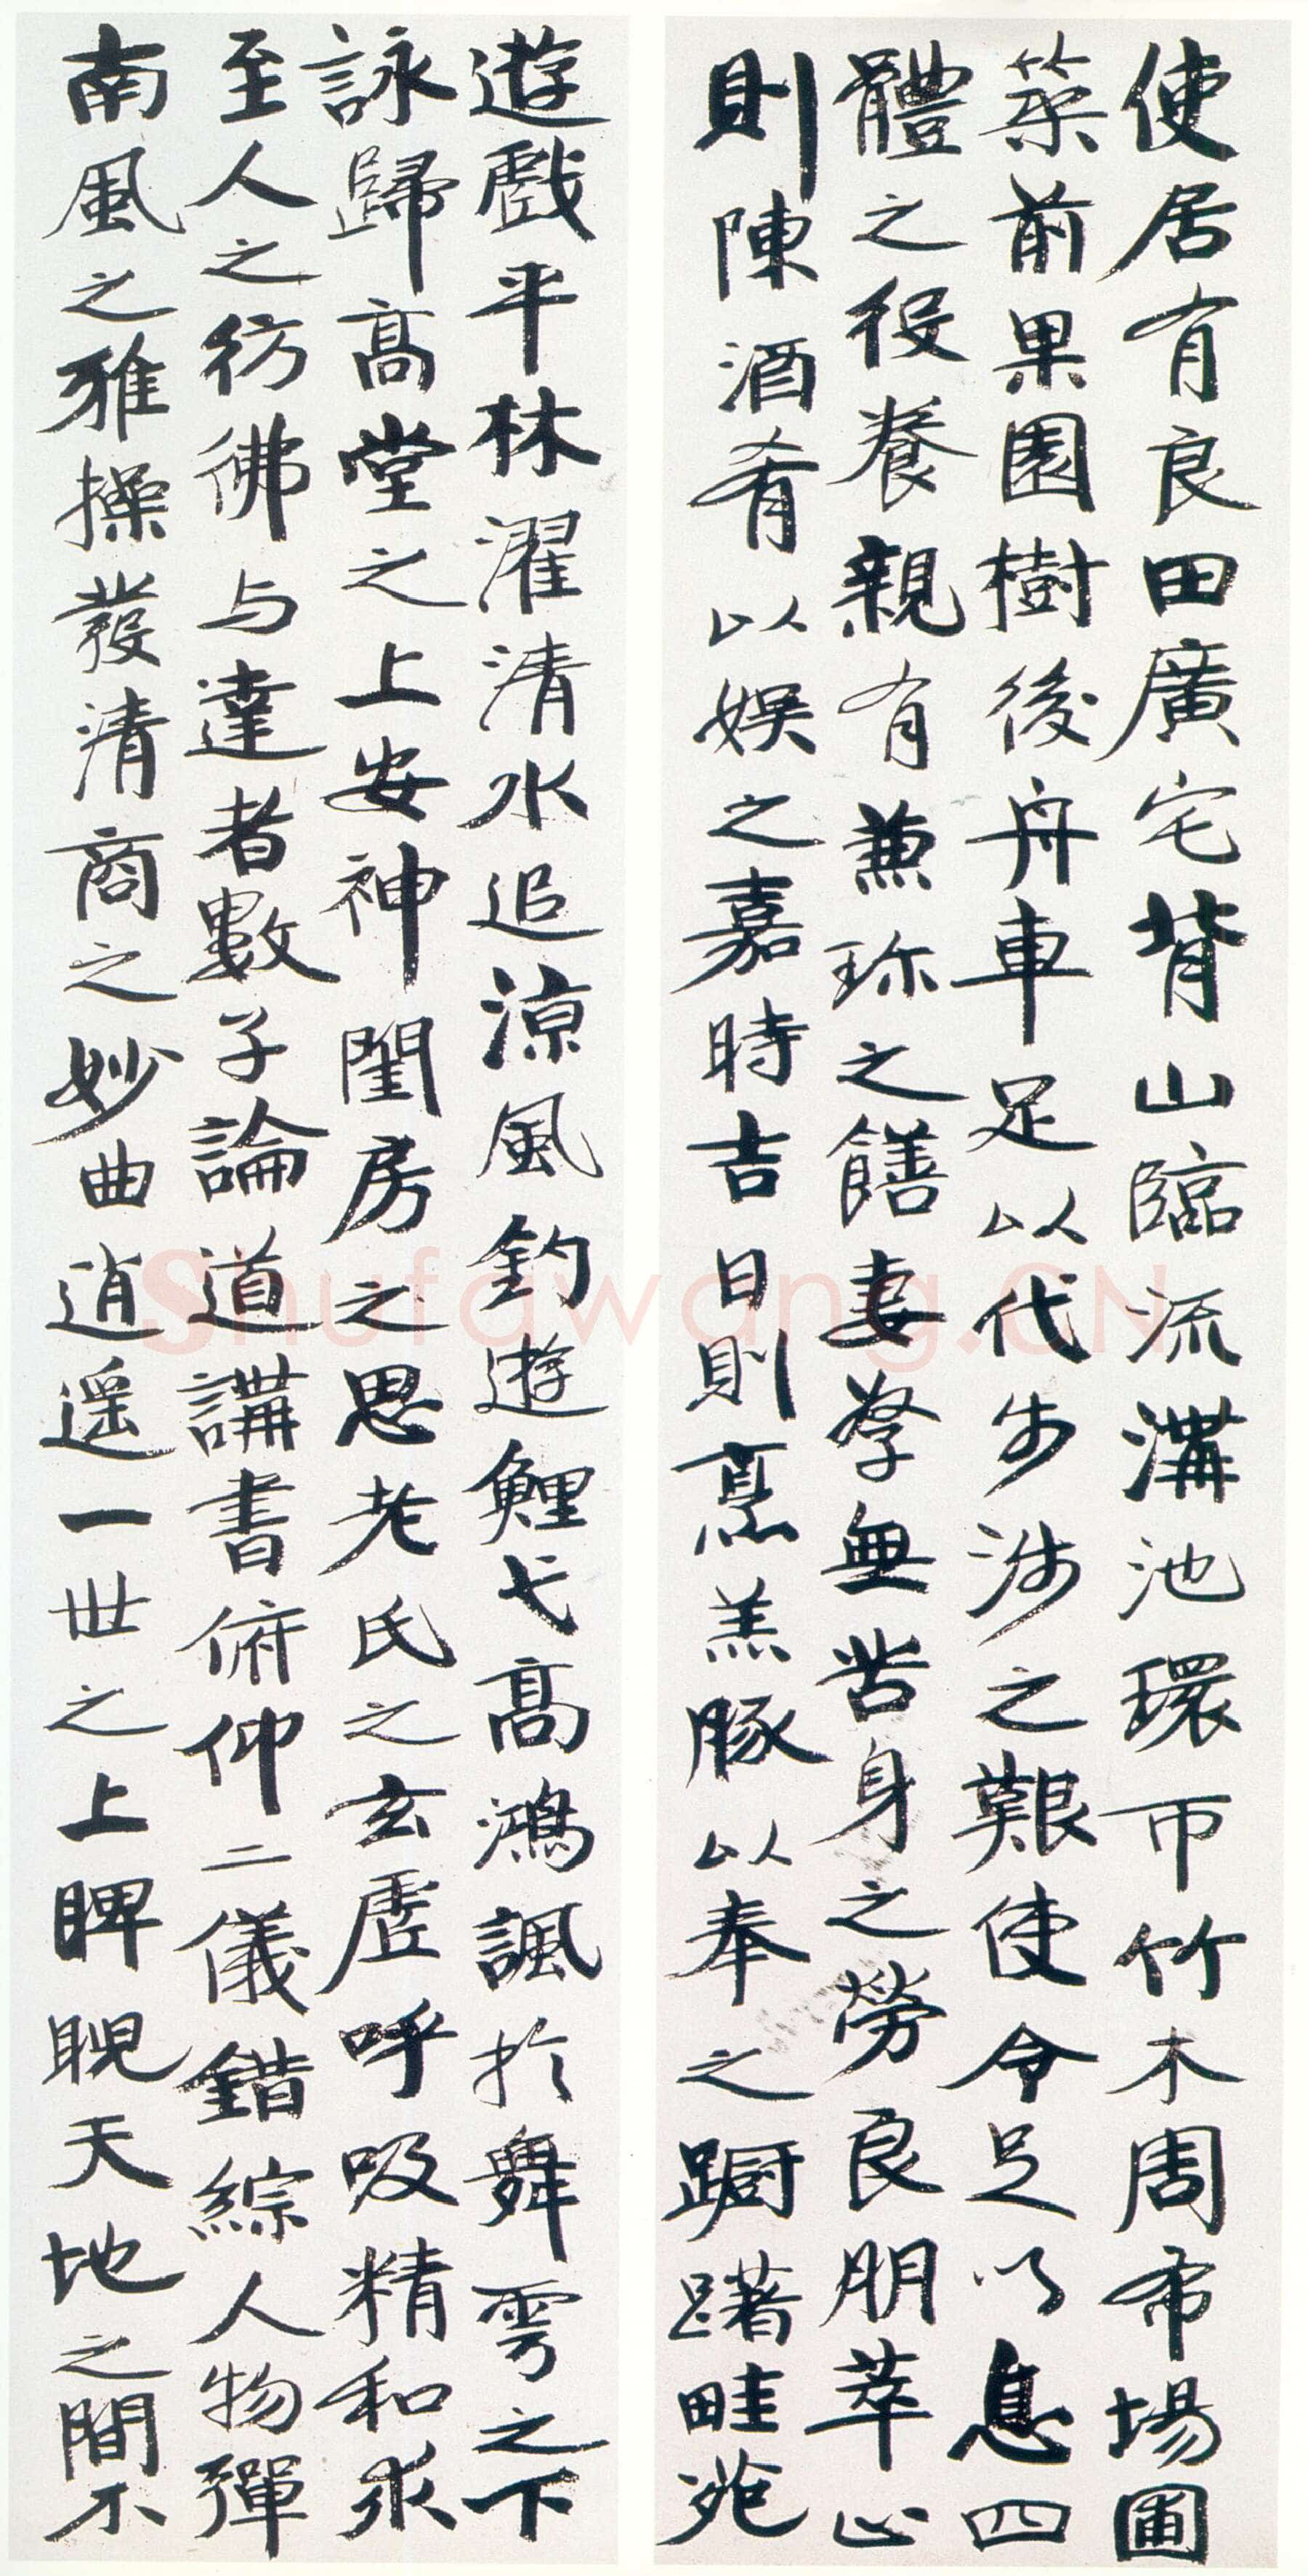 使居有良田廣宅背山臨流溝池環帀竹木周布場圃
築前果園樹後舟車足以代步涉之艱使令足以息四
體之役養親有兼珎之饍妻孥無苦身之勞良朋萃止
則陳酒肴以娛之嘉時吉日則烹羔豚以奉之蹰躇畦苑
遊戲平林濯清水追涼風釣遊鯉弋高鴻諷於舞雩之下
詠歸高堂之上安神閨房之思老氏之玄虛呼吸精和求
至人之彷彿与達者數子論道講書俯仰二儀錯綜人物彈
南風之雅操發清商之妙曲逍遥一世之上睥睨天地之間不
Shufawang.CN